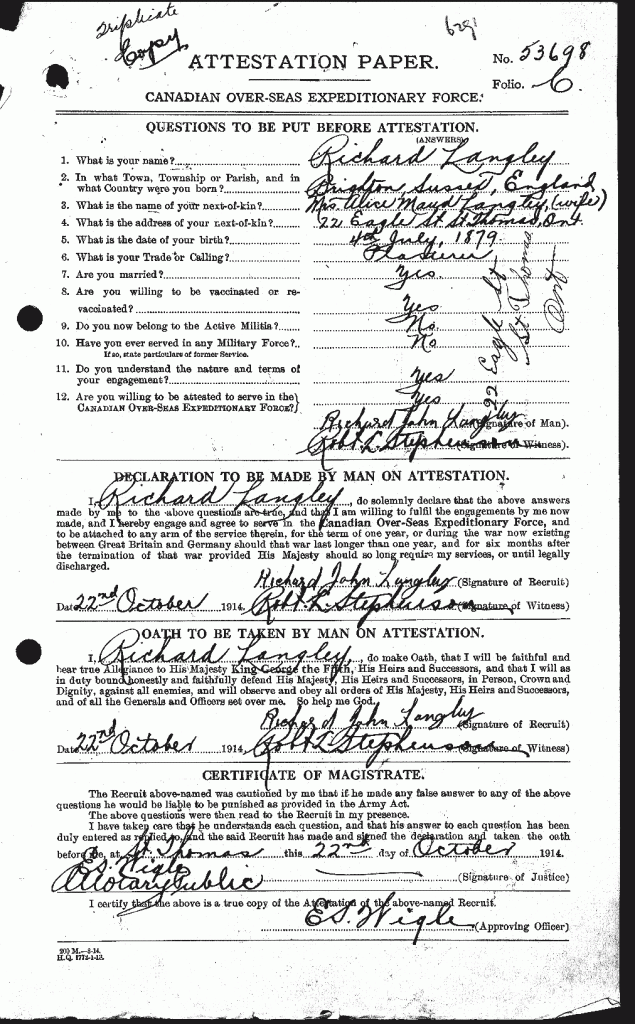 Triplicate
Copy
6291
ATTESTATION PAPER.
No. 53698
Folio. C
CANADIAN OVER-SEAS EXPEDITIONARY FORCE.
QUESTIONS TO BE PUT BEFORE ATTESTATION.
(ANSWERS)
1. What is your name? Richard Langley
2. In what Town, Township or Parish, and in
what Country were you born? Brighton Sussex, England
3. What is the name of your next-of-kin? Mrs. Alice Maud Langley, (wife)
4. What is the address of your next-of-kin? 22 Eagle St St Thomas, Ont
5. What is the date of your birth? 4th July, 1879
6. What is your Trade or Calling? Plasterer
7. Are you married? Yes
8. Are you willing to be vaccinated or re-
vaccinated? Yes
9. Do you now belong to the Active Militia? No
10. Have you ever served in any Military Force? No
If so, state particulars of former Service.
11. Do you understand the nature and terms of
your engagement? Yes
12. Are you willing to be attested to serve in the
CANADIAN OVER-SEAS EXPEDITIONARY FORCE? Yes
22 Eagle St
St Thomas
Ont
Richard John Langley (Signature of Man).
Robt L Stephenson (Signature of Witness).
DECLARATION TO BE MADE BY MAN ON ATTESTATION.
I, Richard Langley, do solemnly declare that the above answers
made by me to the above questions are true, and that I am willing to fulfil the engagements by me now
made, and I hereby engage and agree to serve in the Canadian Over-Seas Expeditionary Force, and
to be attached to any arm of the service therein, for the term of one year, or during the war now existing
between Great Britain and Germany should that war last longer than one year, and for six months after
the termination of that war provided His Majesty should so long require my services, or until legally
discharged.
Richard John Langley (Signature of Recruit)
Date 22nd October 1914. Robt L Stephenson (Signature of Witness)
OATH TO BE TAKEN BY MAN ON ATTESTATION.
I, Richard Langley, do make Oath, that I will be faithful and
bear true Allegiance to His Majesty King George the Fifth, His Heirs and Successors, and that I will as
in duty bound honestly and faithfully defend His Majesty, His Heirs and Successors, in Person, Crown and
Dignity, against all enemies, and will observe and obey all orders of His Majesty, His Heirs and Successors,
and of all the Generals and Officers set over me. So help me God.
Richard John Langley (Signature of Recruit)
Date 22nd October 1914. Robt L Stephenson (Signature of Witness)
CERTIFICATE OF MAGISTRATE.
The Recruit above-named was cautioned by me that if he made any false answer to any of the above
questions he would be liable to be punished as provided in the Army Act.
The above questions were then read to the Recruit in my presence.
I have taken care that he understands each question, and that his answer to each question has been
duly entered as replied to, and the said Recruit has made and signed the declaration and taken the oath
before me, at St. Thomas this 22nd day of October 1914.
E.S. Wigle
A Notary Public (Signature of Justice)
I certify that the above is a true copy of the Attestation of the above-named Recruit.
E S. Wigle (Approving Officer)
200 M.—8-14.
H.Q. 1772-1-13.